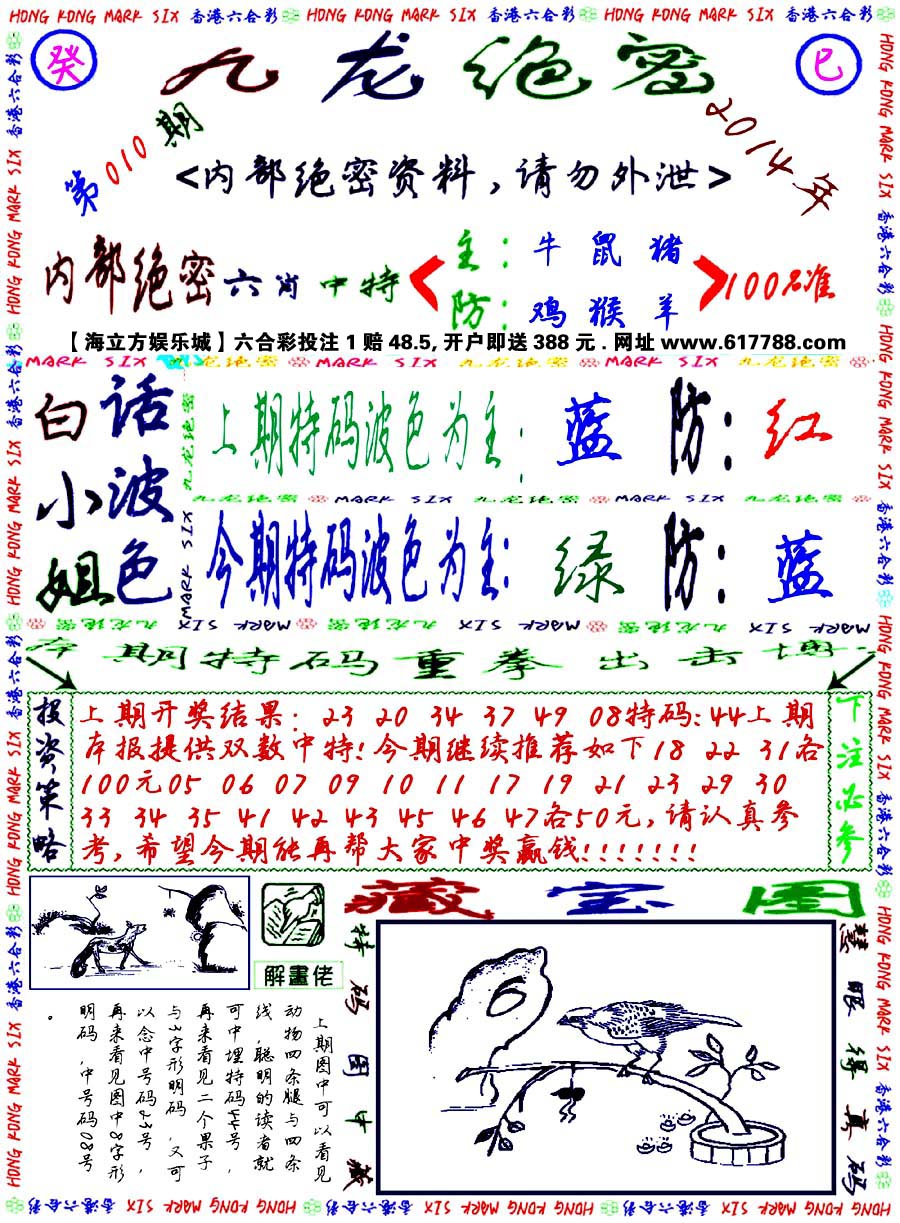 HONG KONG MARK SIX 香港六合彩 HONG KONG MARK SIX 香港六合彩 HONG KONG MARK SIX 香港六合彩
癸 九龙绝密 巳
第010期 2014年
<内部绝密资料,请勿外泄>
内部绝密六肖中特
主:牛鼠猪
防:鸡猴羊
100%准
【海立方娱乐城】六合彩投注1赔48.5,开户即送388元.网址www.617788.com
白小姐
话波色
上期特码波色为主:蓝 防:红
九龙绝密 MARK SIX 九龙绝密 MARK SIX 九龙绝密
今期特码波色为主:绿 防:蓝
本期特码重拳出击
投资策略
上期开奖结果:23 20 34 37 49 08特码:44上期
本报提供双数中特!今期继续推荐如下18 22 31各
100元05 06 07 09 10 11 17 19 21 23 29 30
33 34 35 41 42 43 45 46 47各50元,请认真参
考,希望今期能再帮大家中奖赢钱!!!!!!!
下注必参
解畫佬
藏宝图
上期图中可以看见
动物四条腿与四条
线,聪明的读者就
可中埋特码44号,
再来看见二个果子
与3字形明码,又可
以念中号码23号,
再来看见图中8字形
明码,中号码08号
。
特码图中藏
慧眼得真码
HONG KONG MARK SIX 香港六合彩 HONG KONG MARK SIX 香港六合彩 HONG KONG MARK SIX 香港六合彩